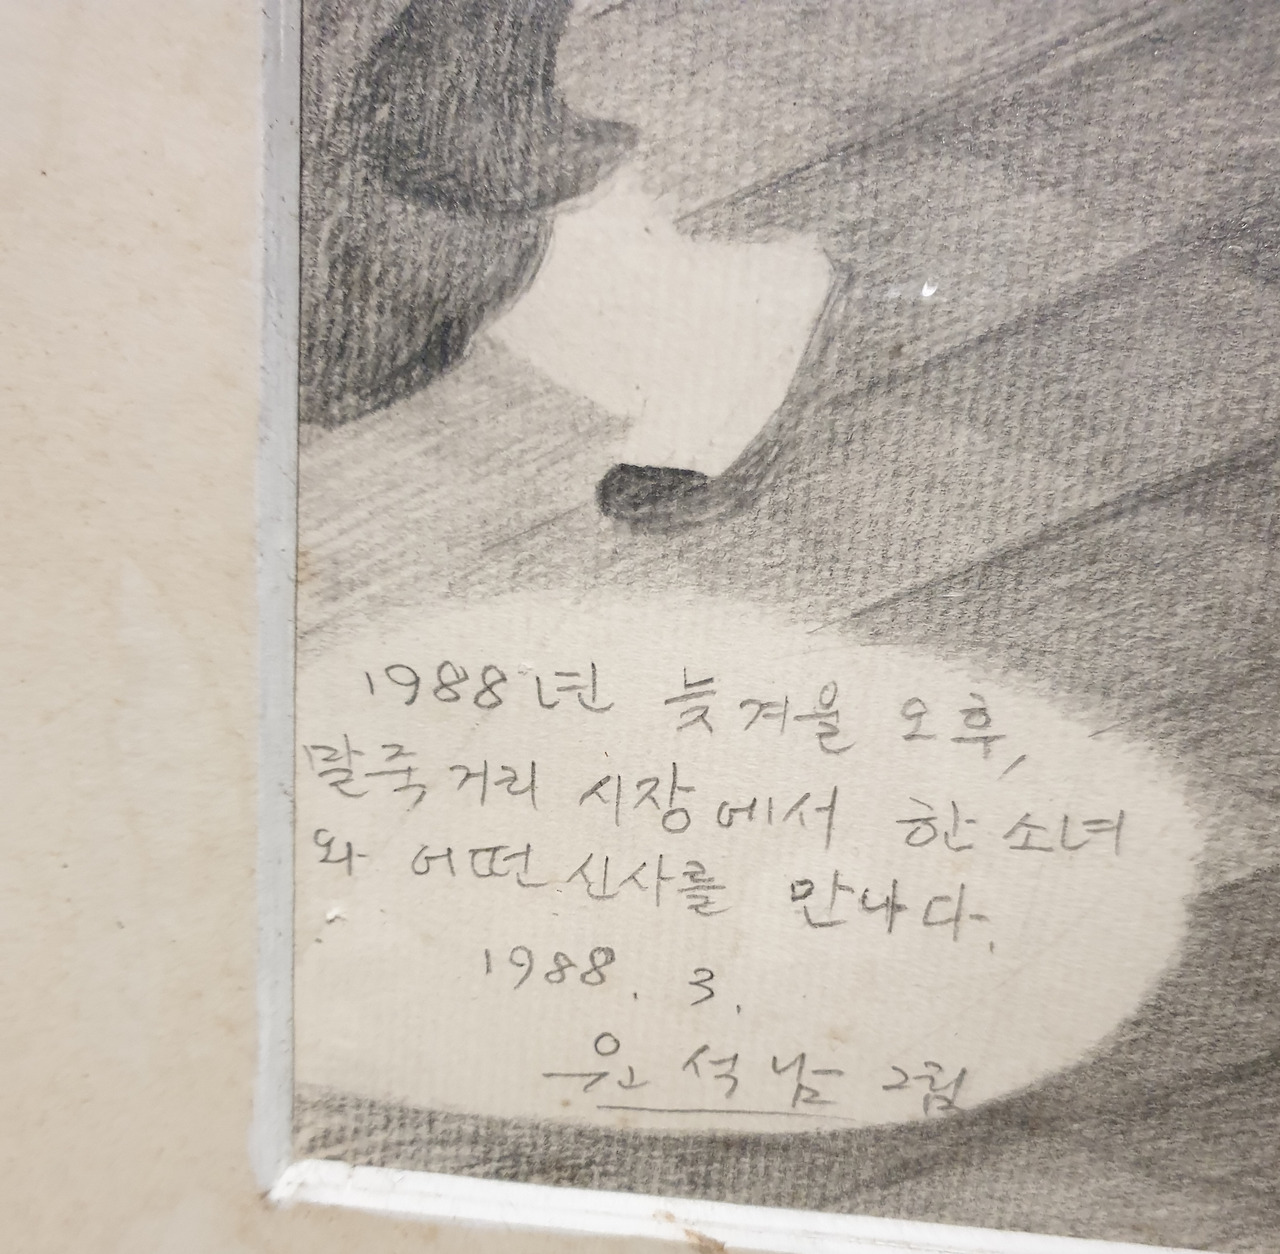 1988년 늦겨울 오후,
말죽거리 시장에서 한 소녀
와 어떤 신사를 만나다.
1988. 3.
윤석남 그림